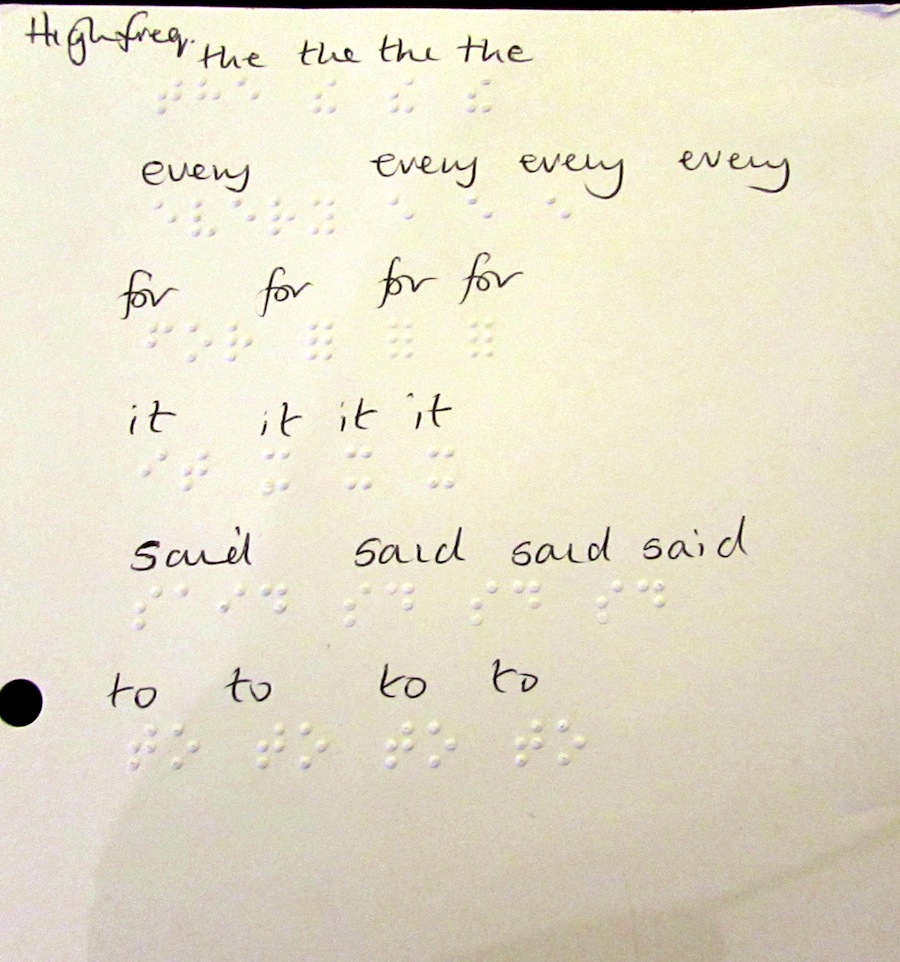 High freq.
the the the the
⠞⠓⠑ ⠮ ⠮ ⠮
every every every every
⠑⠧⠑⠗⠽ ⠑ ⠑ ⠑
for for for for
⠋⠕⠗ ⠿ ⠿ ⠿
it it it it
⠊⠞ ⠭ ⠭ ⠭
said said said said
⠎⠁⠊⠙ ⠎⠙ ⠎⠙ ⠎⠙
to to to to
⠞⠕ ⠞⠕ ⠞⠕ ⠞⠕